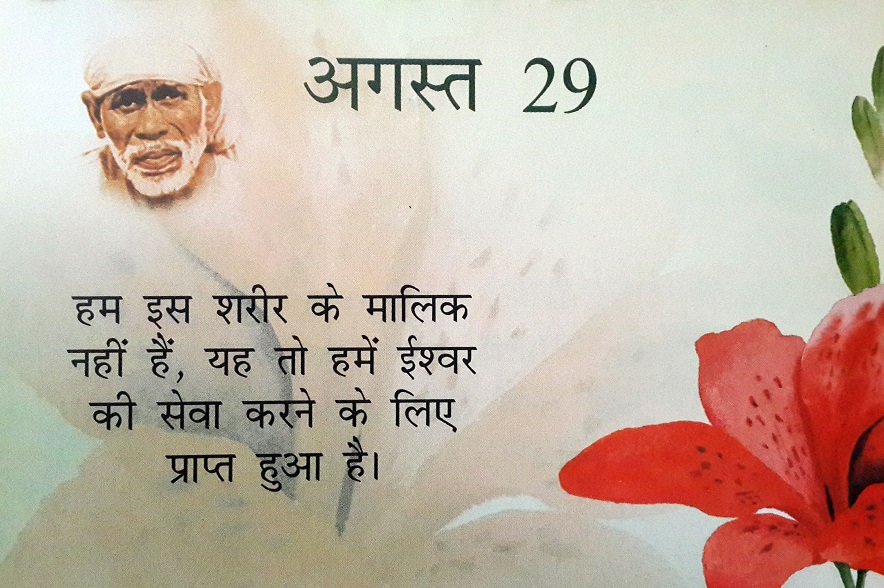 अगस्त 29
हम इस शरीर के मालिक
नहीं हैं, यह तो हमें ईश्वर
की सेवा करने के लिए
प्राप्त हुआ है।